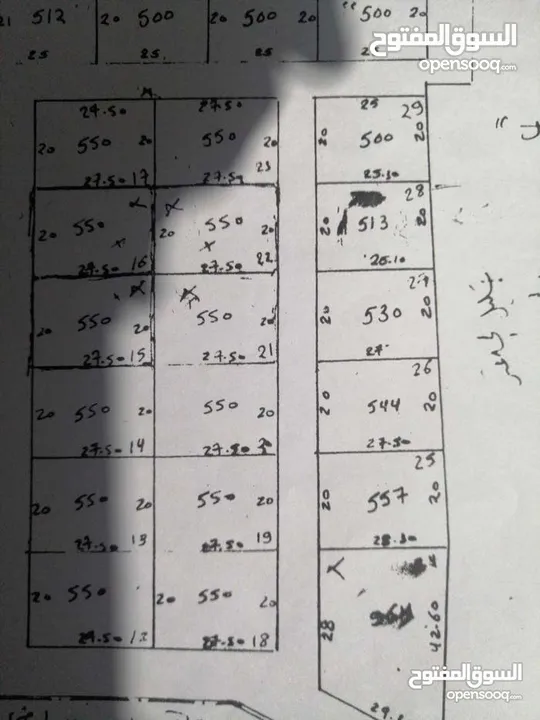 512 20 500 20 500 20 500 20
25 25 25
السوق المفتوح
opensooq.com
24.50 27.50 25 29
20 550 20 550 20 20 500 20
27.50 17 27.50 23 25.30
28
20 550 20 550 20 20 513 20
27.50 16 27.50 22 26.10
20 550 20 550 20 20 530 20
27.50 15 27.50 21 27
26
20 550 20 550 20 20 544 20
27.50 14 27.50 27.50
25
20 550 20 550 20 20 557 20
27.50 13 27.50 19 28.30
20 550 20 550 20 28 42.60
27.50 12 27.50 18
السوق المفتوح
opensooq.com